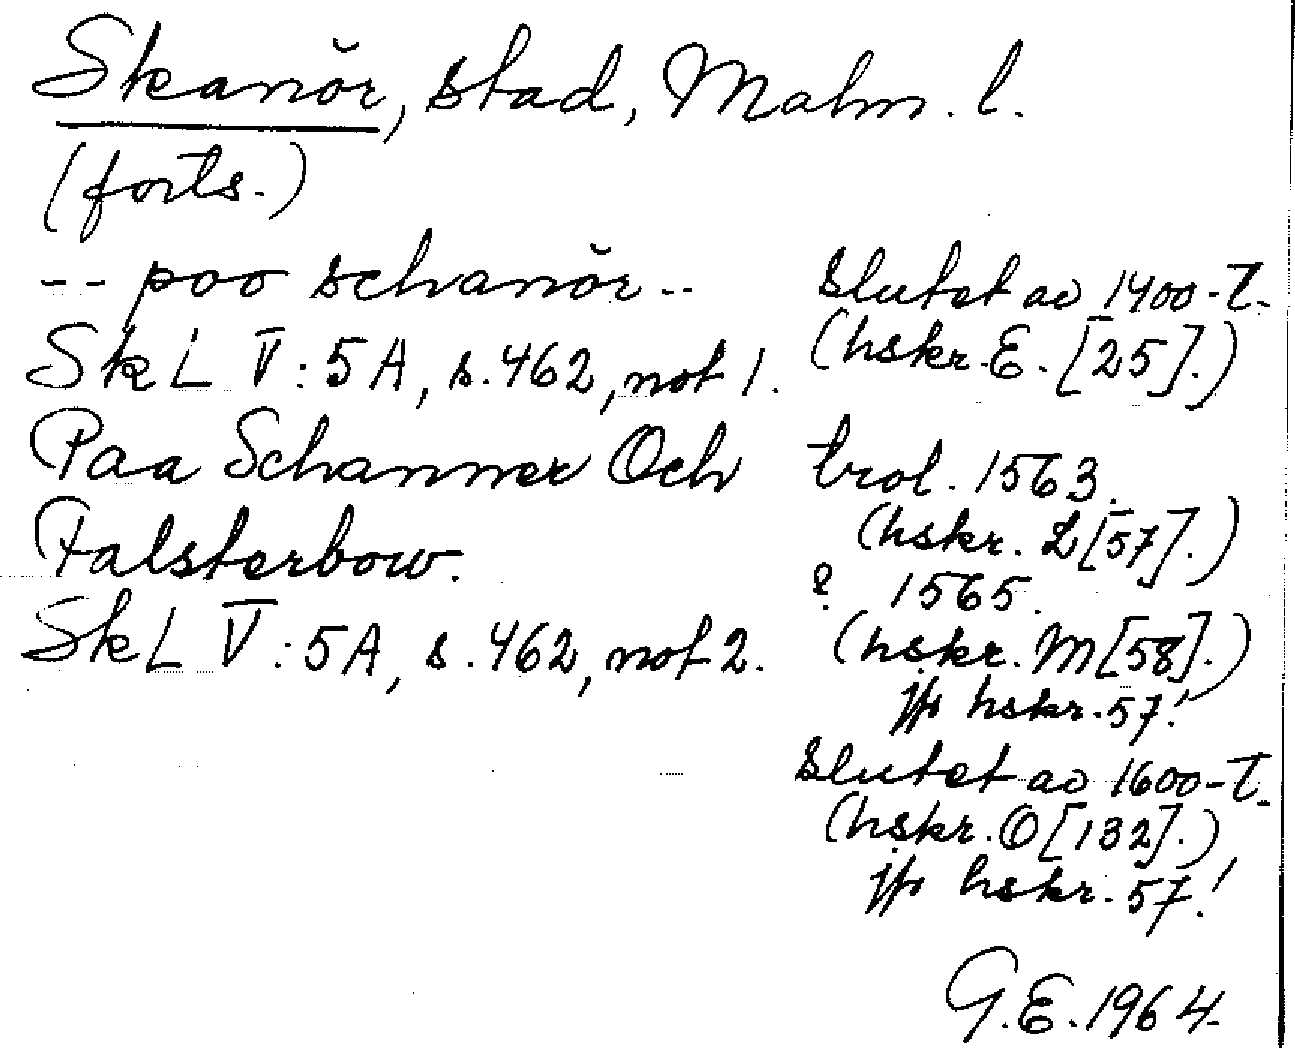 Skanör, stad, Malm. l.
(forts.)
-- poo schanör --
Slutet av 1400-t.
SkL V:5A, s. 462, not 1.
(hskr. E. [25].)
Paa Schanner Och
trol. 1563.
Falsterbow.
(hskr. L [57].)
? 1565.
SkL V:5A, s. 462, not 2.
(hskr. M [58].)
jfr hskr. 57!
Slutet av 1600-t.
(hskr. O [132].)
jfr hskr. 57!
G.E. 1964.